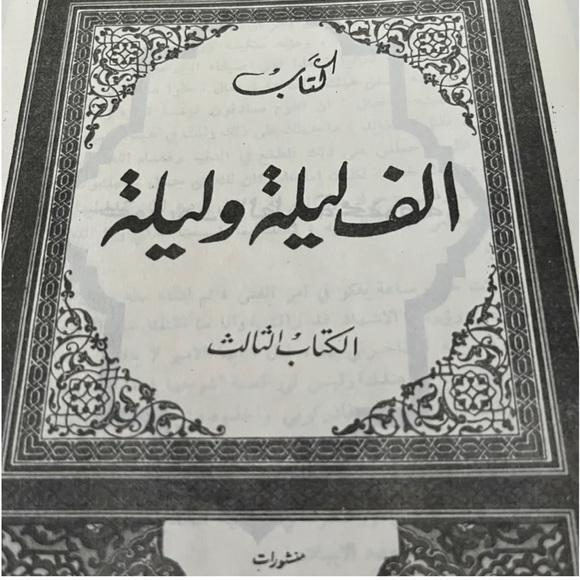 الكتاب
الف ليلة وليلة
الكتاب الثالث
منشورات